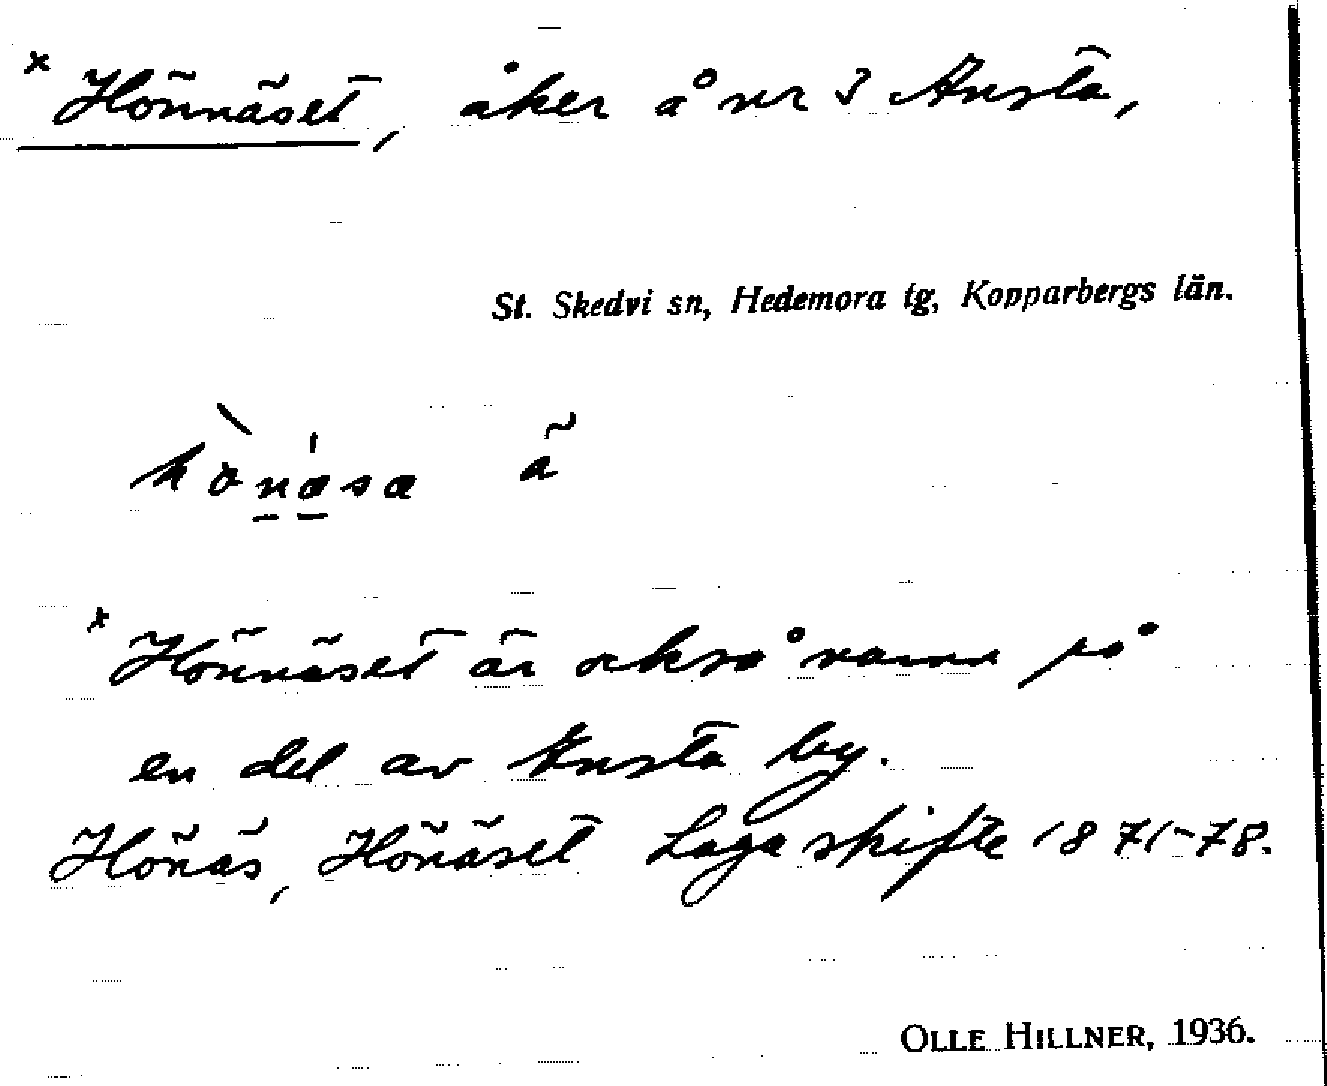 × Hönnäset, åker å nr 3 Ansta,
St. Skedvi sn, Hedemora tg, Kopparbergs län.
hònæsæ å
× Hönnäset är också namn på
en del av Ansta by.
Hönäs, Hönäset Laga skifte 1871-78.
OLLE HILLNER, 1936.